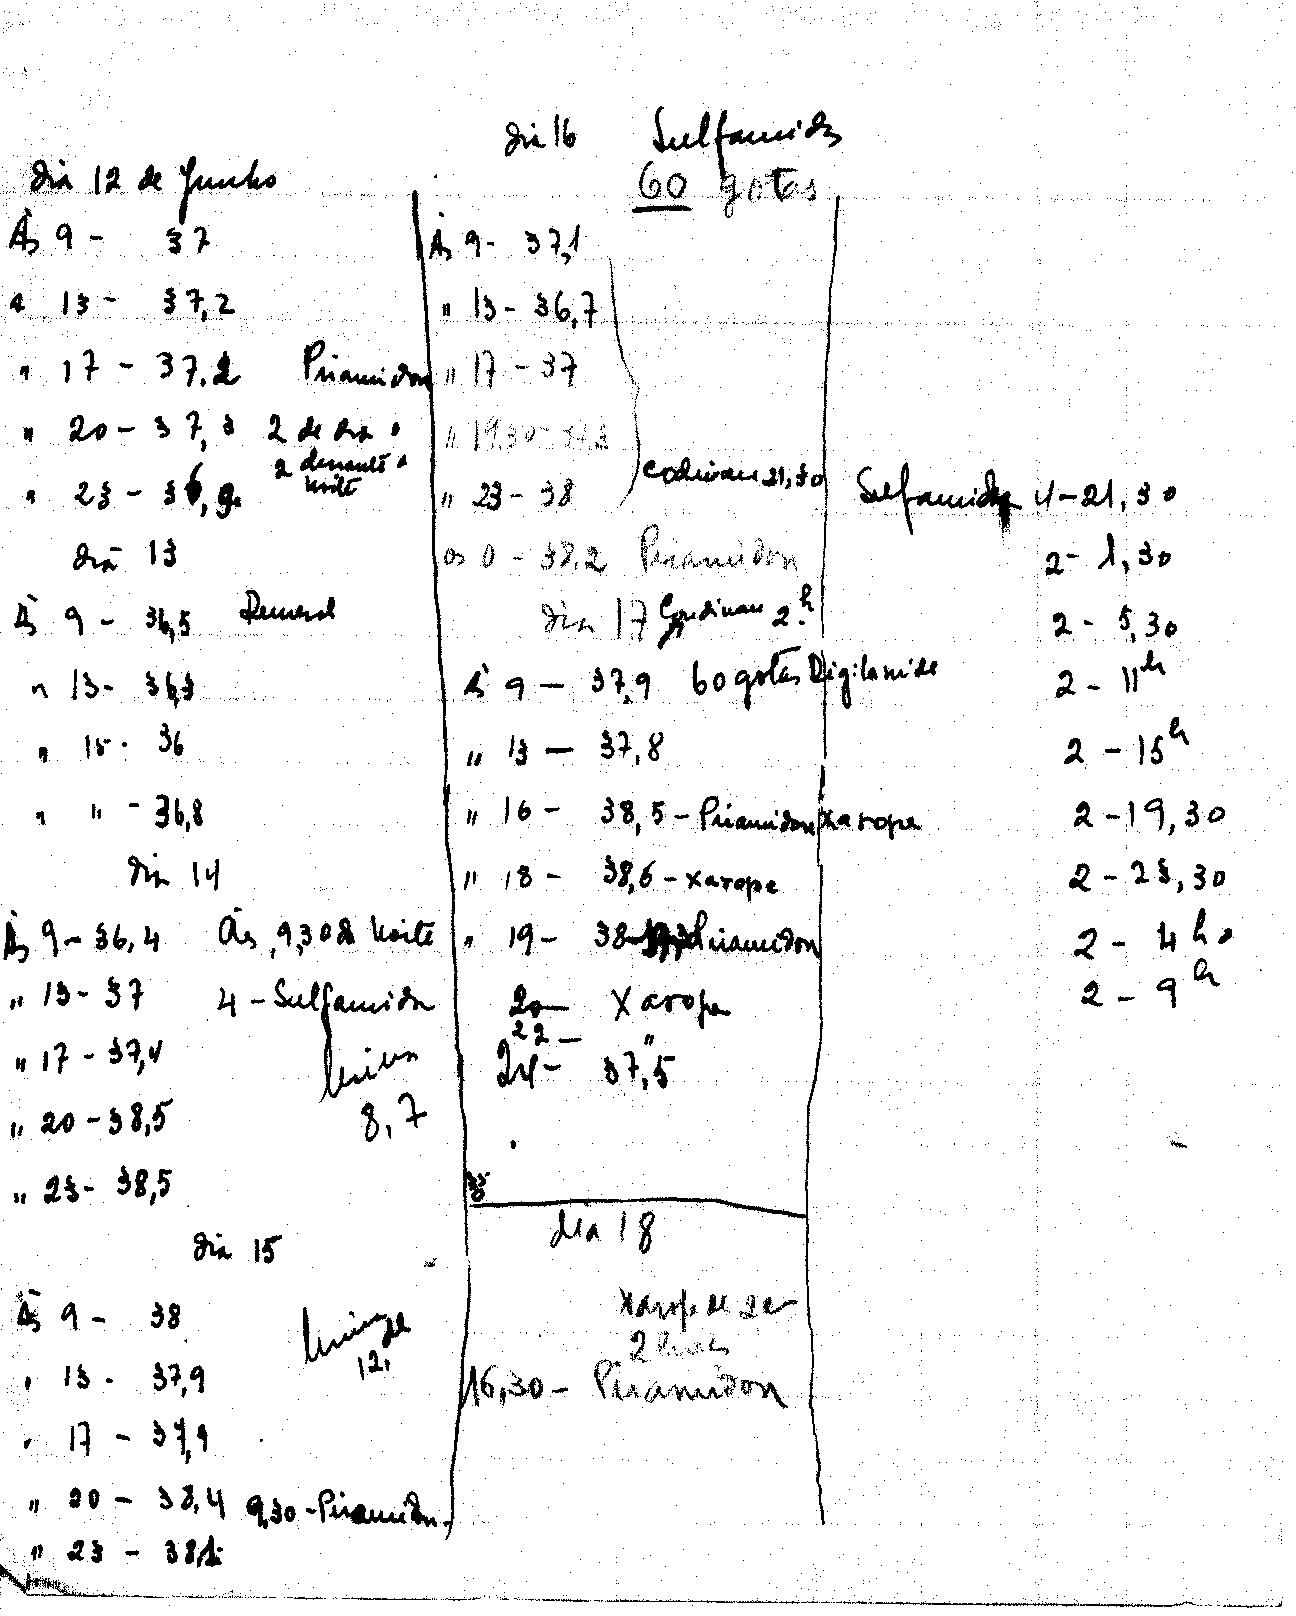 dia 12 de Junho
Às 9 - 37
" 13 - 37,2
" 17 - 37,2 Piramidon
" 20 - 37,3 2 de dia e
2 durante a
noite
" 23 - 36,9
dia 13
Às 9 - 36,5
" 13 - 36,3
" 15 - 36
" " - 36,8
dia 14
Às 9 - 36,4 Às 9,30 da Noite
" 13 - 37 4 - Sulfamida
" 17 - 37,4
8,7
" 20 - 38,5
" 23 - 38,5
dia 15
Às 9 - 38
12,
" 13 - 37,9
" 17 - 37,9
" 20 - 38,4 9,30 - Piramidon
" 23 - 38,1
dia 16 Sulfamida
60 gotas
Às 9 - 37,1
" 13 - 36,7
" 17 - 37
" 19,30 -
21,30
" 23 - 38
às 0 - 38,2 Piramidon
dia 17 2h
Às 9 - 37,9 60 gotas Digilanide
" 13 - 37,8
" 16 - 38,5 - Piramidon xarope
" 18 - 38,6 - xarope
" 19 - 38 Piramidon
20 - Xarope
22 - "
24 - 37,5
dia 18
Xarope de 2 em
2 horas
16,30 - Piramidon
Sulfamida 4 - 21,30
2 - 1,30
2 - 5,30
2 - 11h
2 - 15h
2 - 19,30
2 - 23,30
2 - 4h
2 - 9h